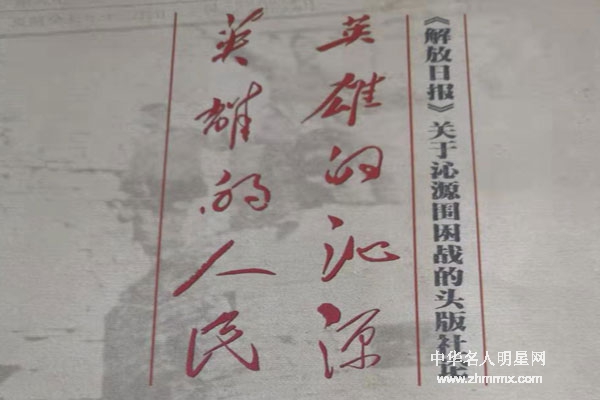 《解放日报》关于沁源围困战的头版社论
英雄的沁源
英雄的人民
中华名人明星网
www.zhmmmx.com